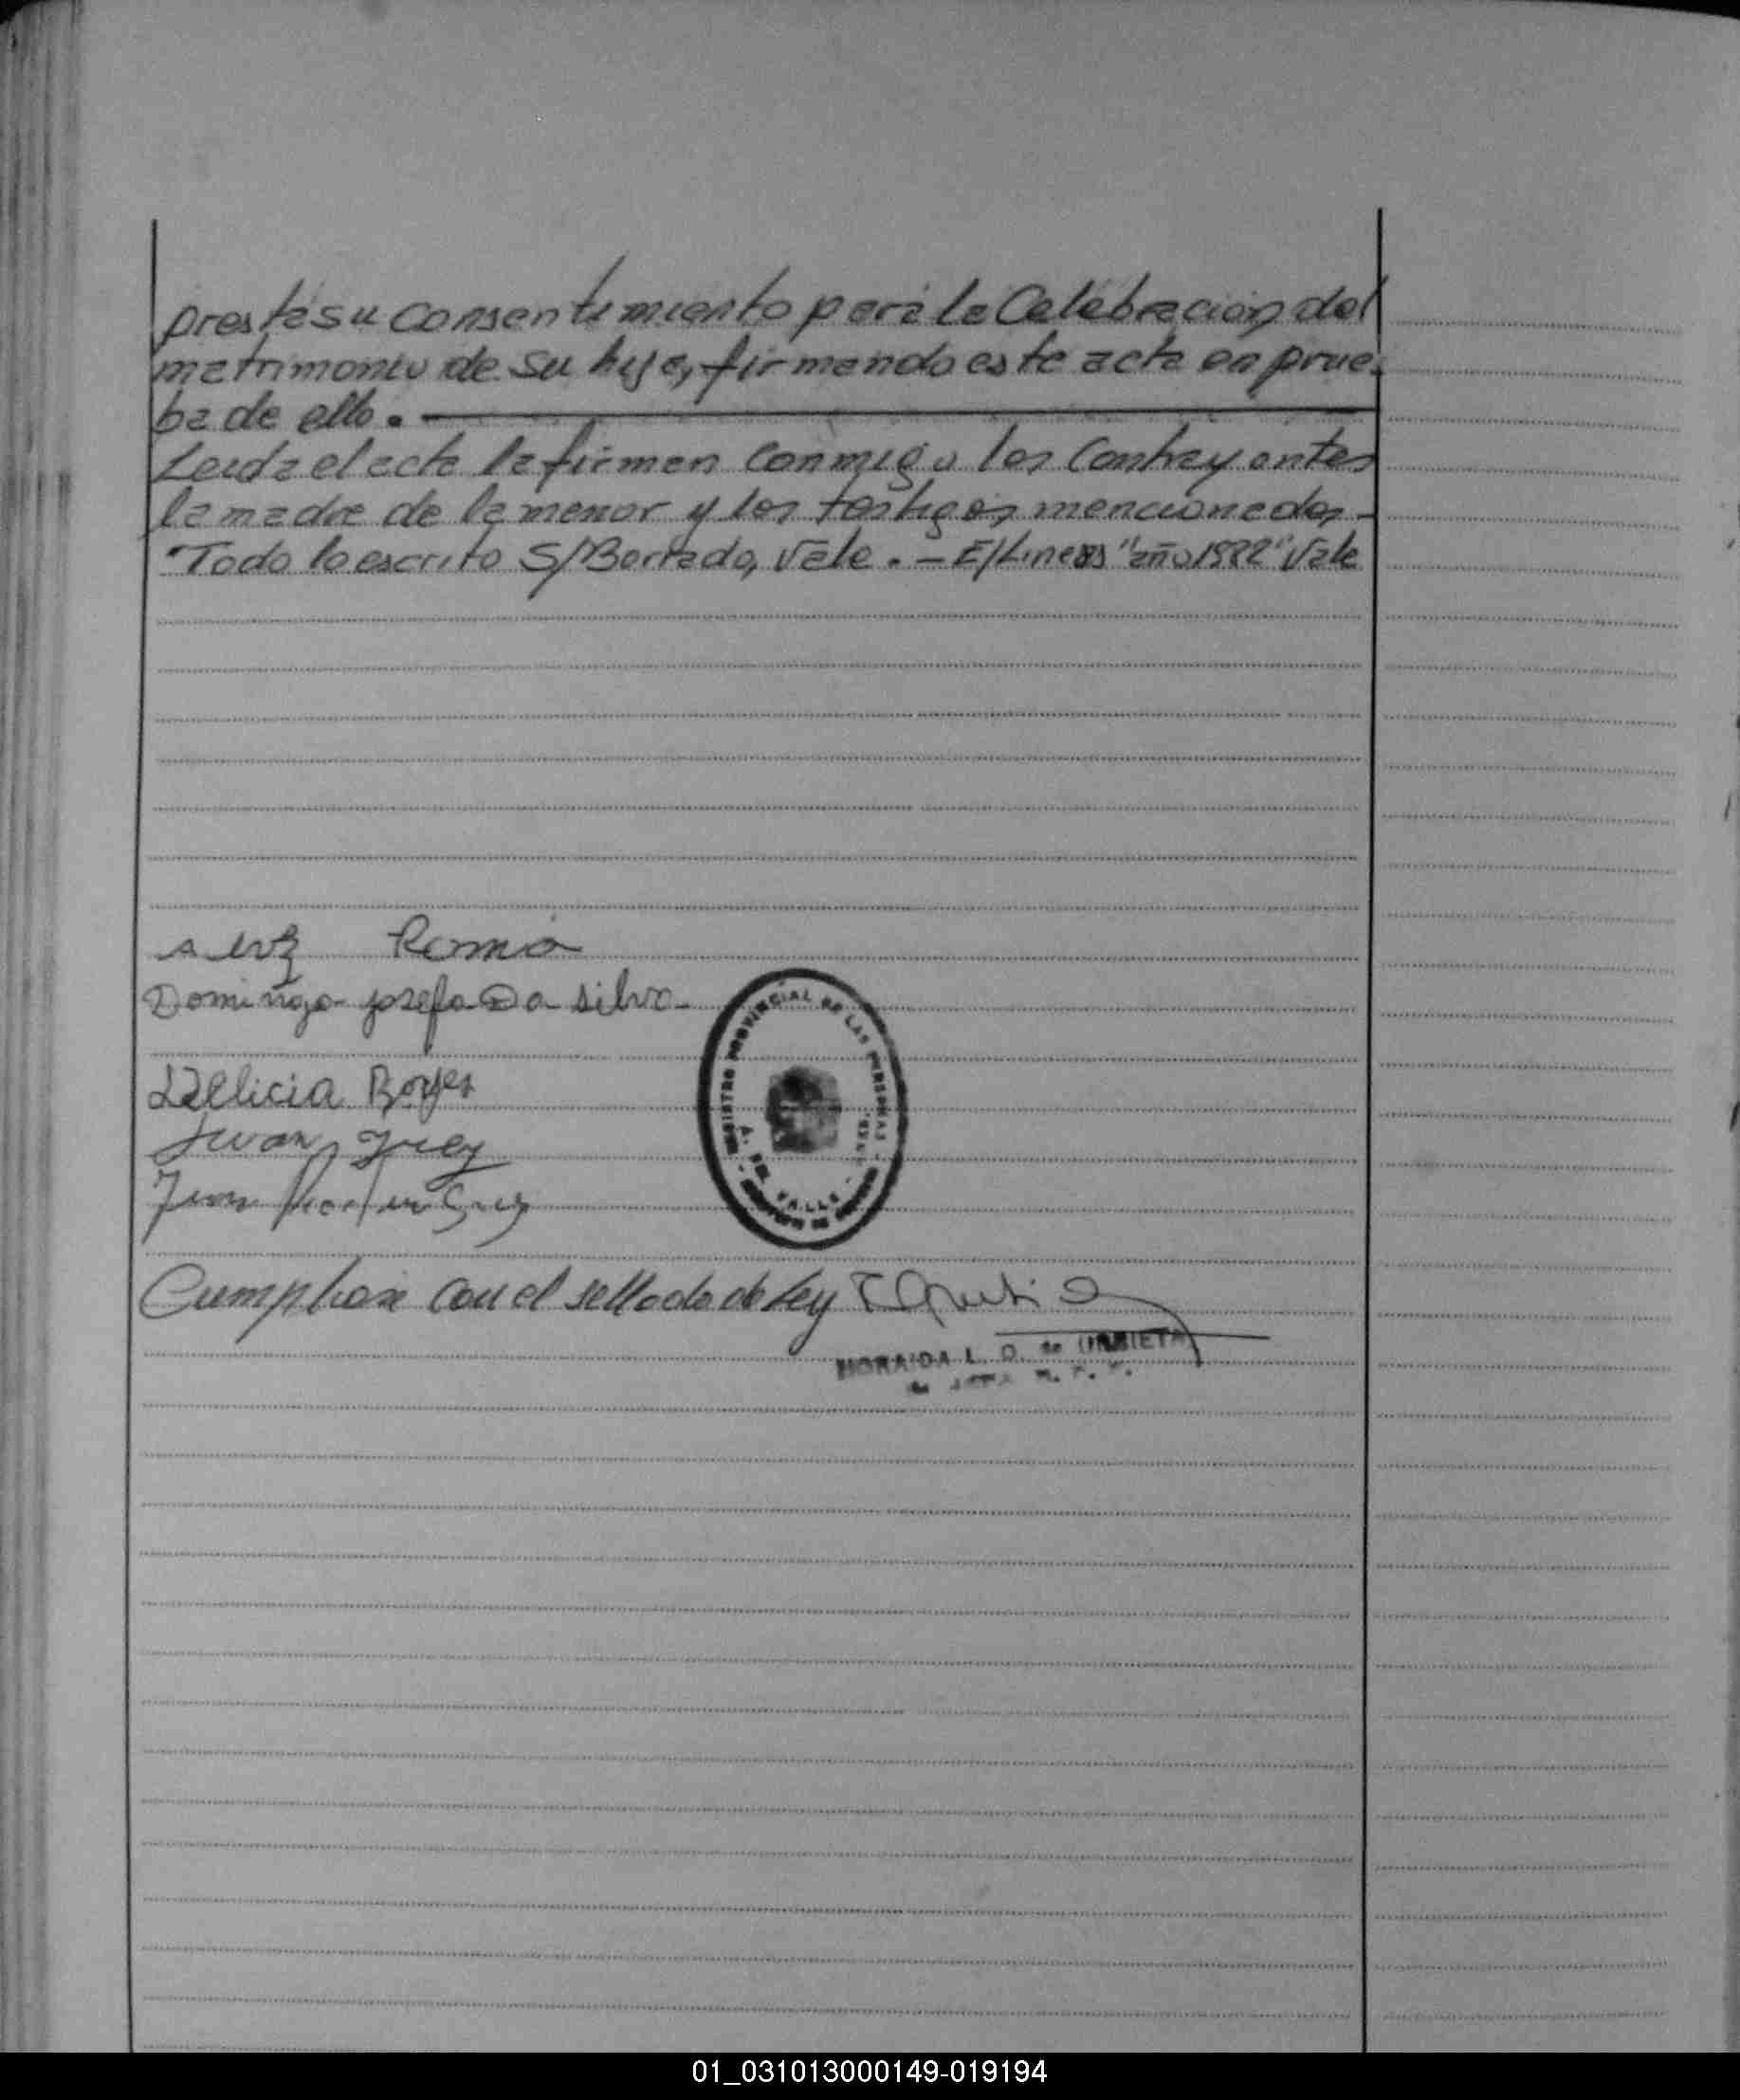 presta su consentimiento para la Celebración del
matrimonio de su hija, firmando este acta en prue-
ba de ello.
Leida el acta la firman conmigo los Contrayentes
la madre de la menor y los testigos mencionados.-
"Todo lo escrito S/Borrado, Vale. - E/Lineas "año 1982" Vale
Roma
Dominga Josefa Da silva
Delicia Borges
Juan
Juan
REGISTRO PROVINCIAL DE LAS PERSONAS
A. DEL VALLE
Cumplase con el sellado de Ley
MORAIDA L. D. de URRIETA
01_031013000149-019194